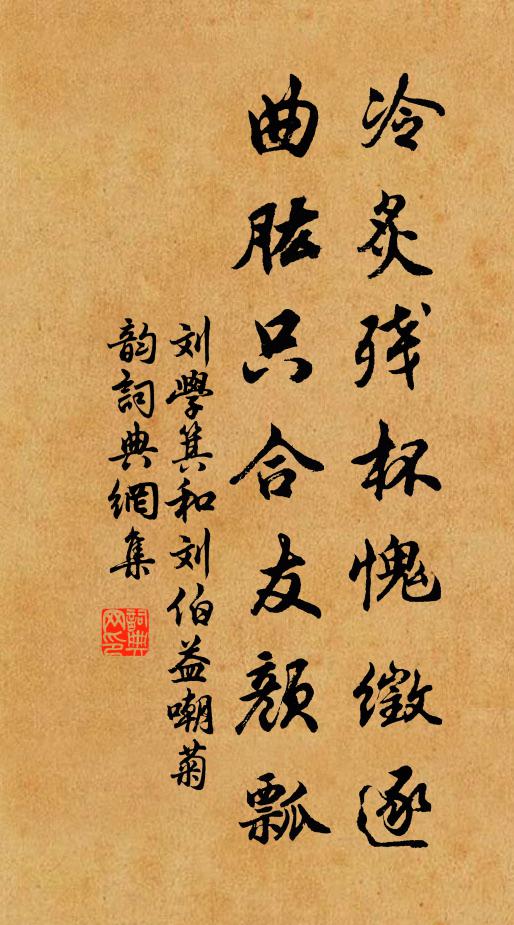 冷炙残杯愧徵逐
曲肱只合友颜瓢
刘學箕和刘伯益嘲菊
韵詞典網集
詞典网印